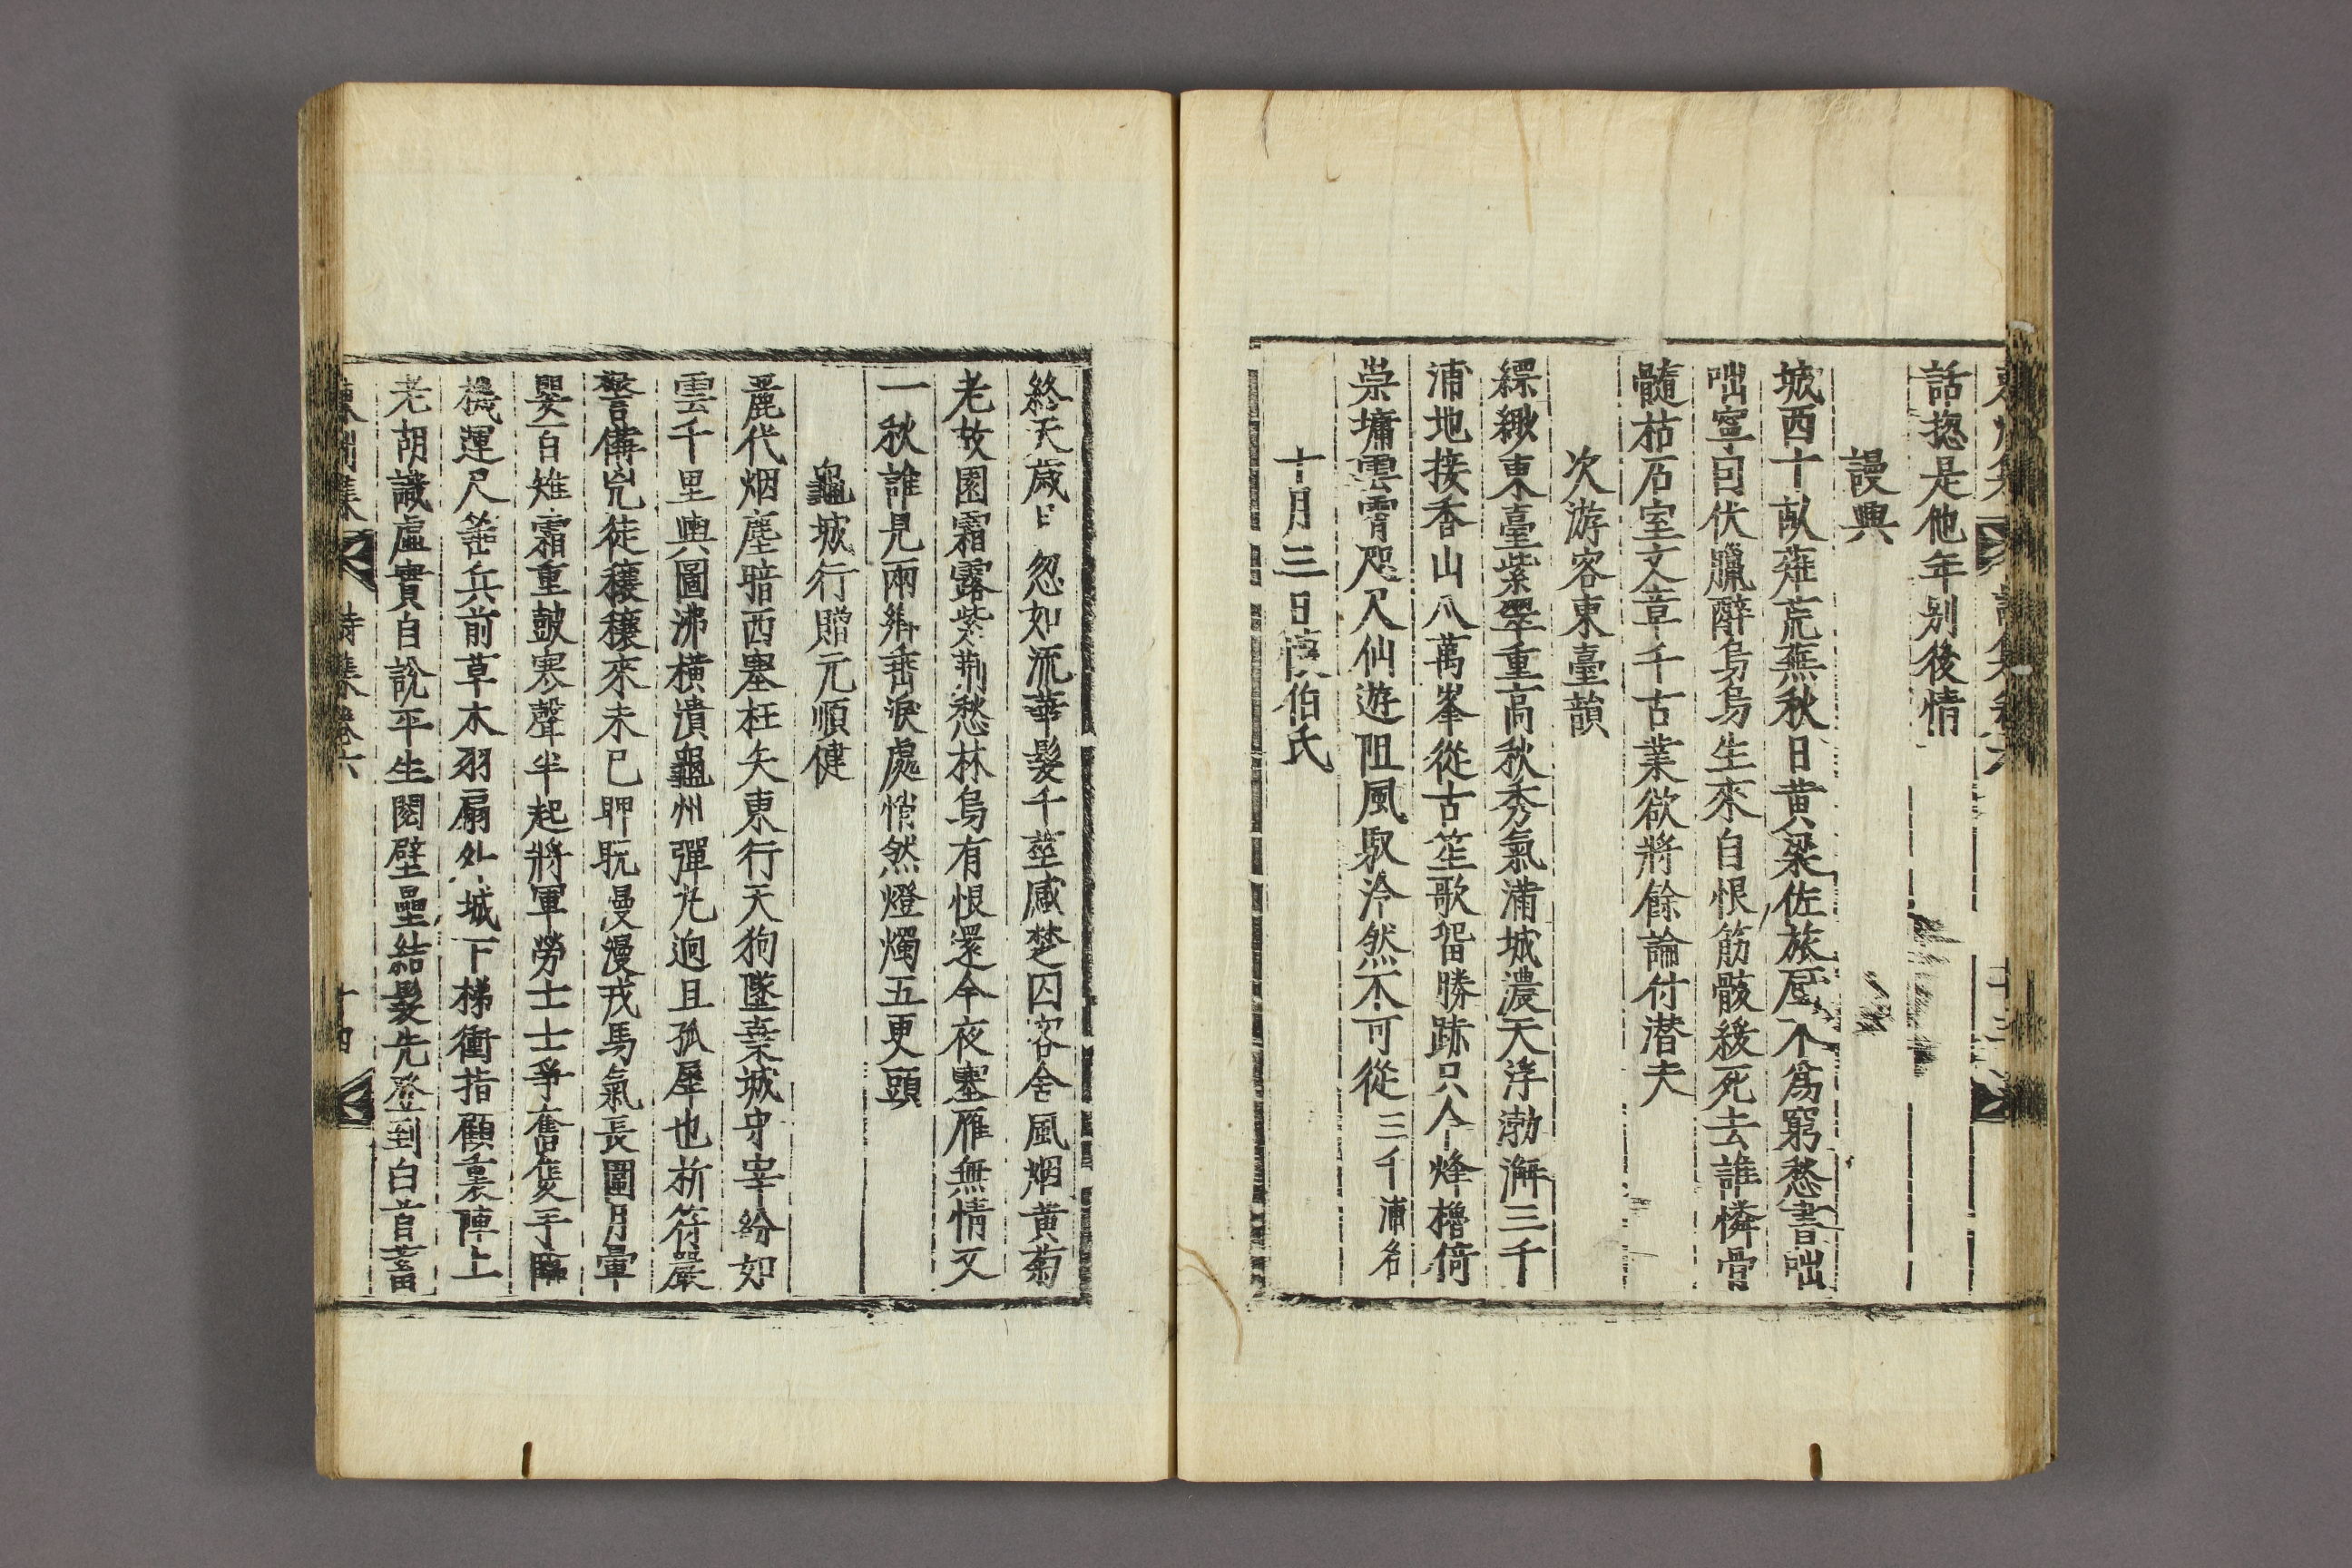 話摠是他年別後情
謾興
城西十畝薙荒蕪秋日黃粱佐旅厨不爲窮愁書咄
咄寧同伏臘醉烏烏生來自恨筋骸緩死去誰憐骨
髓枯石室文章千古業欲將餘論付潜夫
次游客東臺韻
縹緲東臺紫翠重高秋秀氣滿城濃天浮渤澥三千
浦地接香山八萬峯從古笙歌留勝跡只今烽櫓倚
崇墉雲霄咫尺仙遊阻風馭泠然不可從三千浦名
十月三日憶伯氏
終天歲日忽如流華髮千莖感楚囚客舍風烟黃菊
老故園霜露紫荆愁林烏有恨還今夜塞雁無情又
一秋誰見兩鄕垂淚處悄然燈燭五更頭
龜城行贈元順健
麗代烟塵暗西塞枉矢東行天狗墜棄城守宰紛如
雲千里輿圖沸橫潰龜州彈丸逈且孤犀也析符嚴
警備兇徒穰穰來未已胛䀪漫漫戎馬氣長圍月暈
嬰百雉霜重皷寒聲半起將軍勞士士爭奮隻手臨
機運尺箠兵前草木羽扇外城下梯衝指顧裏陣上
老胡識虛實自說平生閱壁壘結髮先登到白首蓄
東州集 詩集卷六 十四